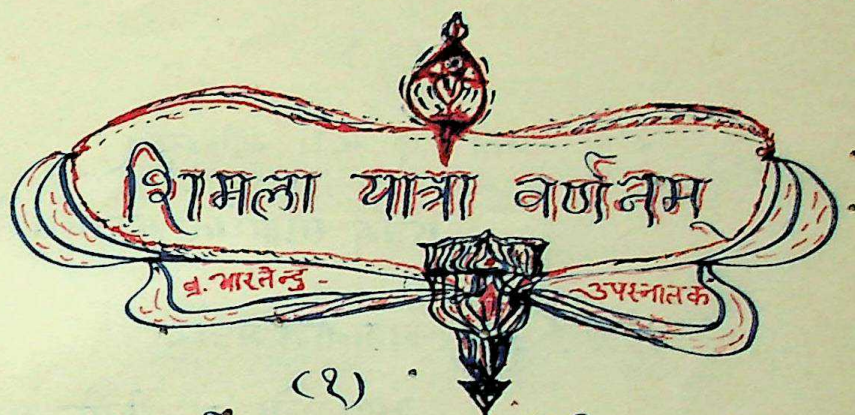 शिमला यात्रा वर्णनम्
ब्र. भारतेन्दु - उपस्नातक
(१)